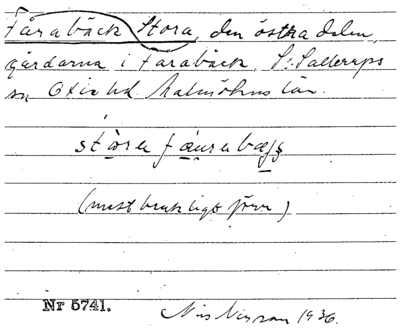 Fårabäck Stora, den östra delen,
gårdarna i Farabäck, S: Sallerups
sn Oxie hd Malmöhus län.
(mest brukligt förr)
Nr 5741.
Nils Nilsson 1936.